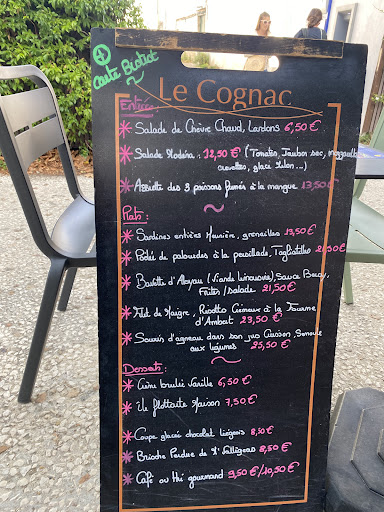 Carte Bistrot
Le Cognac
Entrées :
Salade de Chèvre Chaud, Lardons 6,50 €
Salade Modena : 12,50 € (Tomates, Jambon sec, mozzarella
crevettes, glacé ...)
Assiette des 3 poissons fumés à la mangue 13,50 €
Plats :
Sardines entières Meunière, grenailles 13,50 €
Poêlée de palourdes à la persillade, Tagliatelles 21,50 €
Bavette d'Aloyau (Viande limousine), Sauce Bercy,
Frites/salade 21,50 €
Filet de Maigre, Risotto Crémeux à la Fourme
d'Ambert 23,50 €
Souris d'agneau dans son jus Cuisson, Semoule
aux légumes 25,50 €
Desserts :
Crème brulée Vanille 6,50 €
Ile flottante Maison 7,50 €
Coupe glacée chocolat Liégeois 8,50 €
Brioche Perdue de St Valligeas 8,50 €
Café ou thé gourmand 9,50 €/10,50 €